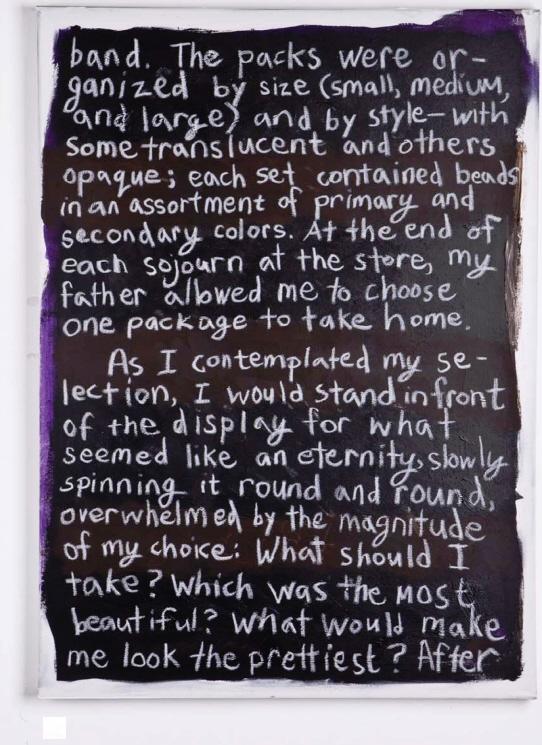 band. The packs were or-
ganized by size (small, medium,
and large) and by style—with
some translucent and others
opaque; each set contained beads
in an assortment of primary and
secondary colors. At the end of
each sojourn at the store, my
father allowed me to choose
one package to take home.
As I contemplated my se-
lection, I would stand in front
of the display for what
seemed like an eternity, slowly
spinning it round and round,
overwhelmed by the magnitude
of my choice: What should I
take? Which was the most
beautiful? What would make
me look the prettiest? After